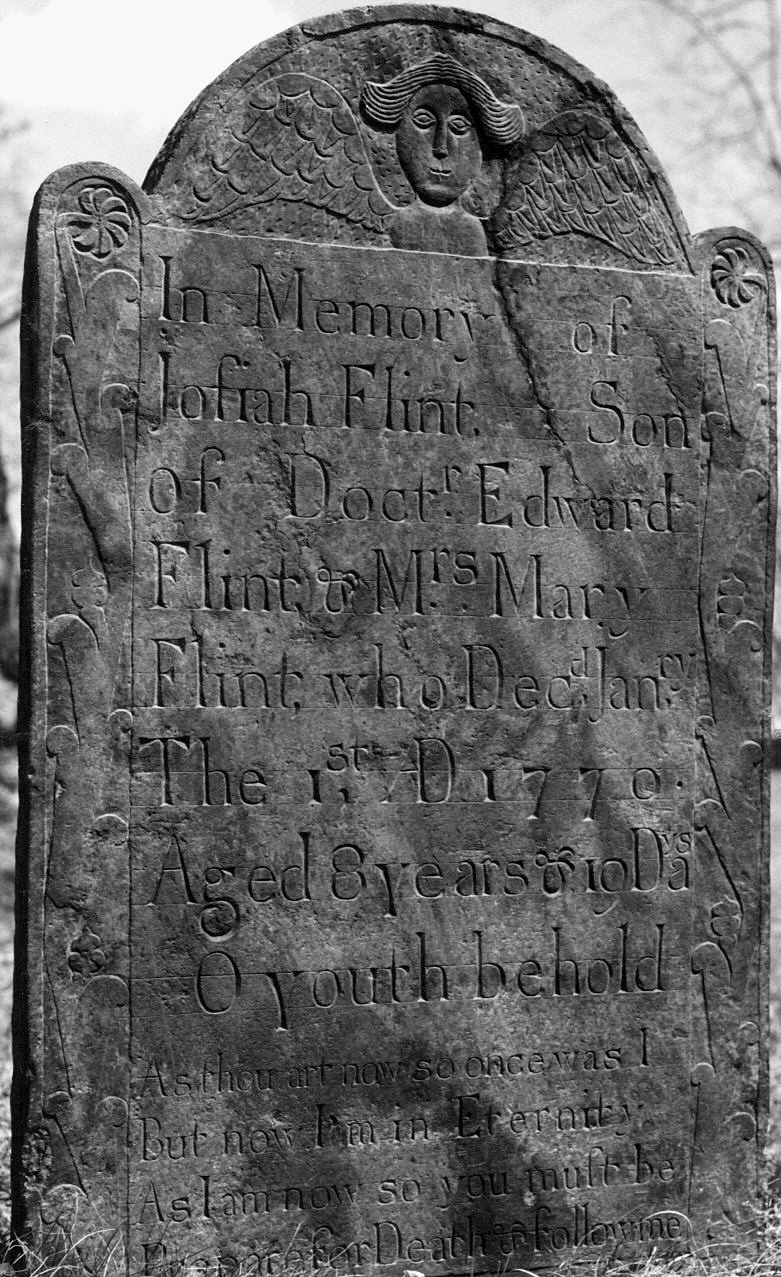 In Memory of
Joſiah Flint Son
of Doctʳ. Edward
Flint, & Mʳˢ. Mary
Flint, who Decᵈ. Janʳʸ.
The 1ˢᵗ, AD 1770.
Aged 8 years & 19 Dʸˢa
O youth behold
As thou art now so once was I
But now I'm in Eternity
As I am now so you muſt be
Prepare for Death & follow me